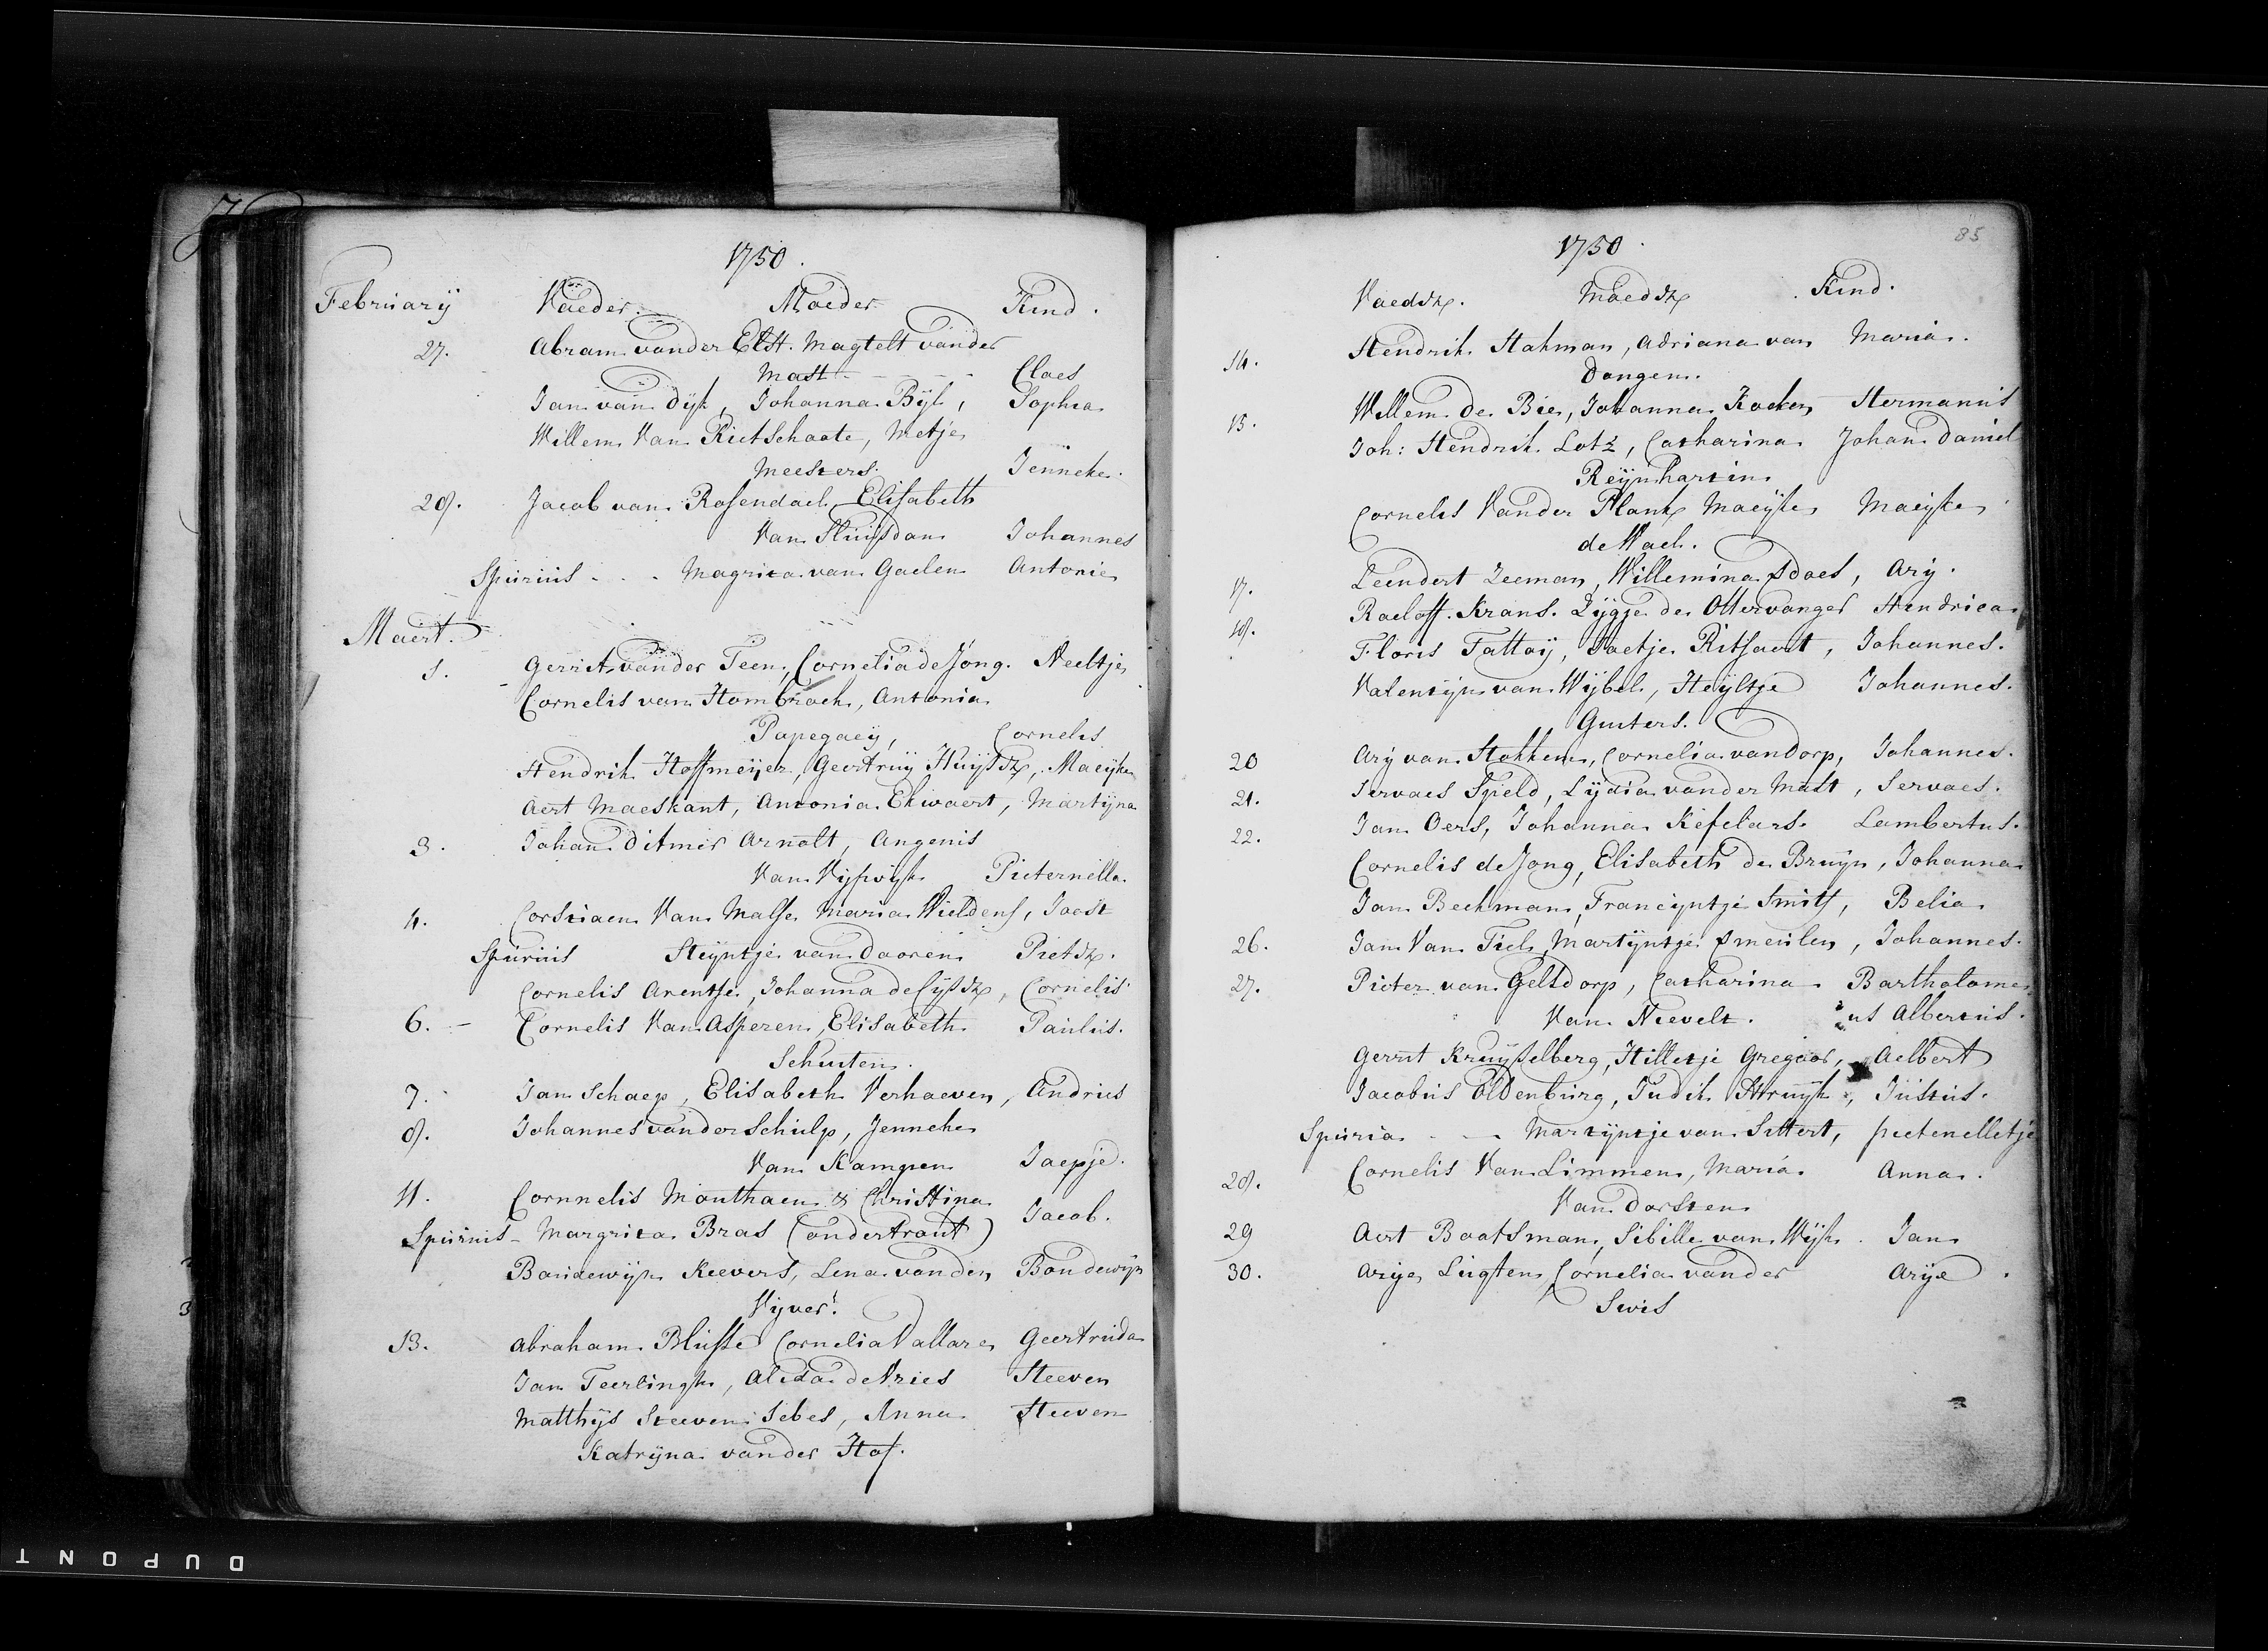 1750.
Februarij Vaeder. Moeder Kind.
27. Abram vander Elst. Magtelt vander
Mast - - - - Claes
Jan van Dijk, Johanna Bijl, Sophia
Willem Van Rietschoote, Metje
Meesters. Jenneke.
28. Jacob van Rosendael, Elisabeth
Van Sluijsdam Johannes
Spurius - - - Magrita van Gaelen Antonie
Maert.
1. Gerrit vander Teen, Cornelia de Jong. Neeltje
Cornelis van Hombroek, Antonia
Papegaeij, Cornelis
Hendrik Hoffmeijer, Geertruij Huijser, Maeijke
Aert Maeskant, Antonia Ekwaert, Martijna
3. Johan Ditmer Arnolt, Angenis
Van Pieternella.
4. Corstiaen Van Malse Maria Wieldens, Joost
Spurius Steijntje van Dooren Pieter.
Cornelis Arentse, Johanna de Cijser, Cornelis
6. - Cornelis Van Asperen, Elisabeth Paulus.
Schuten.
7. Jan Schaep, Elisabeth Verhoeven, Andries
8. Johannes vander Schulp, Jenneke
Van Kampen Jaepje.
11. Cornnelis Monthaen & Christina
Jacob.
Spurius - Margrita Bras (ondertrout)
Boudewijn Keevers, Lena vanden Boudewijn
Vijver.
13. Abraham Blusse Cornelia Vallare Geertruida
Jan Teerlingh, Alida de Vries Steeven
Matthijs Steeven Sebes, Anna Steeven
Katrijna vander Hof.
85
1750.
Vaeder. Moeder Kind.
14. Hendrik Hakman, Adriana van Maria.
Dongen.
15. Willem de Bie, Johanna Kocken Hermanus
Joh: Hendrik Lotz, Catharina Johan Daniel
Reijnhartin
Cornelis Vander Plank Maeijke Maeijke
de Wael.
17. Leendert Zeeman, Willemina Sdoes, Arij.
18. Raeloff Krans. Lijgje de Ottervanger Hendrica
Floris Tattoij, Jaetje Ritsaert, Johannes.
Valentijn van Wijbel, Heijltje Johannes.
Guiters.
20 Arij van Hokken, Cornelia van Dorp, Johannes.
21. Servaes Speld, Lijdia vander Mast, Servaes.
22. Jan Oers, Johanna Kefelars. Lambertus.
Cornelis de Jong, Elisabeth de Bruijn, Johanna
Jan Beekman, Francijntje Smits, Belia
26. Jan Van Tiel, Martijntje Smeulen, Johannes.
27. Pieter van Gelsdorp, Catharina Bartholome
Van Nievelt. us Albertus.
Gerrit Kruijselberg, Hilletje Gregoor, Aelbert
Jacobus Oldenburg, Judik Struijk, Justus.
Spuria - - Martijntje van Sittert, pieternelletje
28. Cornelis Van Limmen, Maria Anna.
Van Dorsten
29 Aert Bootsman, Sibille van Wijk. Jan
30. Arije Lugten, Cornelia vander Arije.
Swis
DUPONT